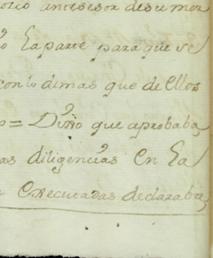 antesesor desu mer
La parte para que se
con lo dimas que de ellos
= Dixo que aprobaba
as diligencias En La
Executadas declaraba